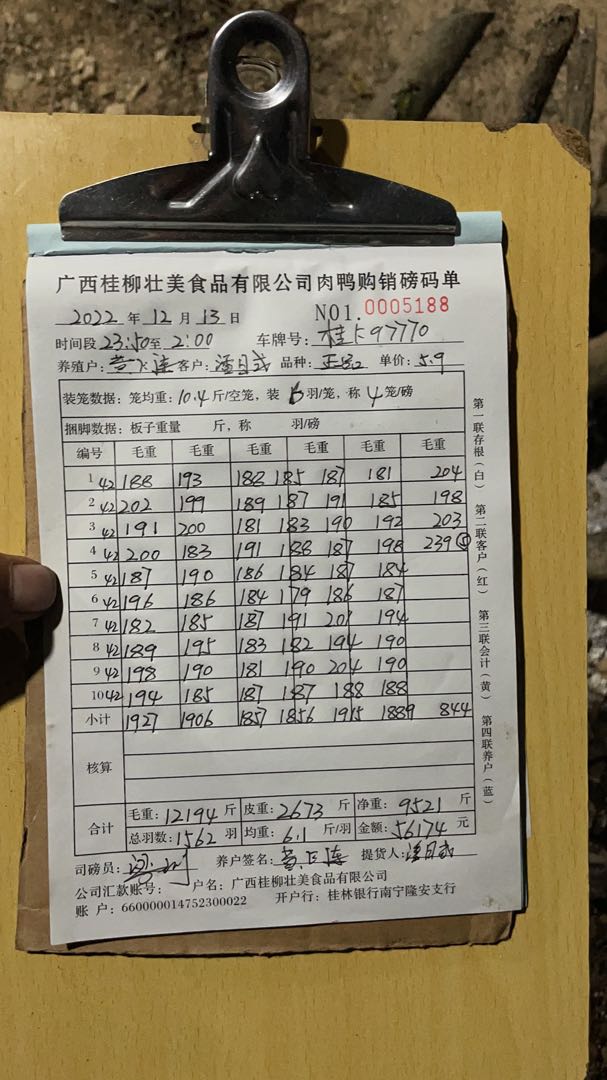 广西桂柳壮美食品有限公司肉鸭购销磅码单
2022 年 12 月 13 日 NO1. 0005188
时间段 23:50 至 2:00 车牌号: 桂 97770
养殖户: 客户: 品种: 单价: 5.9
装笼数据: 笼均重: 10.4 斤/空笼, 装 羽/笼, 称 4 笼/磅
捆脚数据: 板子重量 斤, 称 羽/磅
编号 毛重 毛重 毛重 毛重 毛重 毛重 毛重
1 42 188 193 188 185 187 181 204
2 42 202 199 189 187 191 185 198
3 42 191 200 181 183 190 192 203
4 42 200 183 191 188 187 198 239 ⑤
5 42 187 190 186 184 187 184
6 42 196 186 184 179 186 187
7 42 182 185 187 191 201 194
8 42 189 195 183 182 194 190
9 42 198 190 181 190 204 190
10 42 194 185 187 187 188 188
小计 1927 1906 1857 1856 1915 1889 844
核算
合计 毛重: 12194 斤 皮重: 2673 斤 净重: 9521 斤
总羽数: 1562 羽 均重: 6.1 斤/羽 金额: 56174 元
司磅员: 养户签名: 提货人:
公司汇款账号: 户名: 广西桂柳壮美食品有限公司
账 户: 660000014752300022 开户行: 桂林银行南宁隆安支行
第一联存根(白) 第二联客户(红) 第三联会计(黄) 第四联养户(蓝)